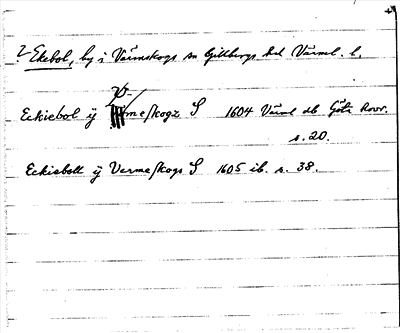 ? Ekebol, by i Värmskogs sn Gillbergs hd Värml. l.
Eckiebol ÿ Vermeskogz S 1604 Värml db Götz
s. 20.
Eckiebott ÿ Vermeskogs S 1605 ib. s. 38.